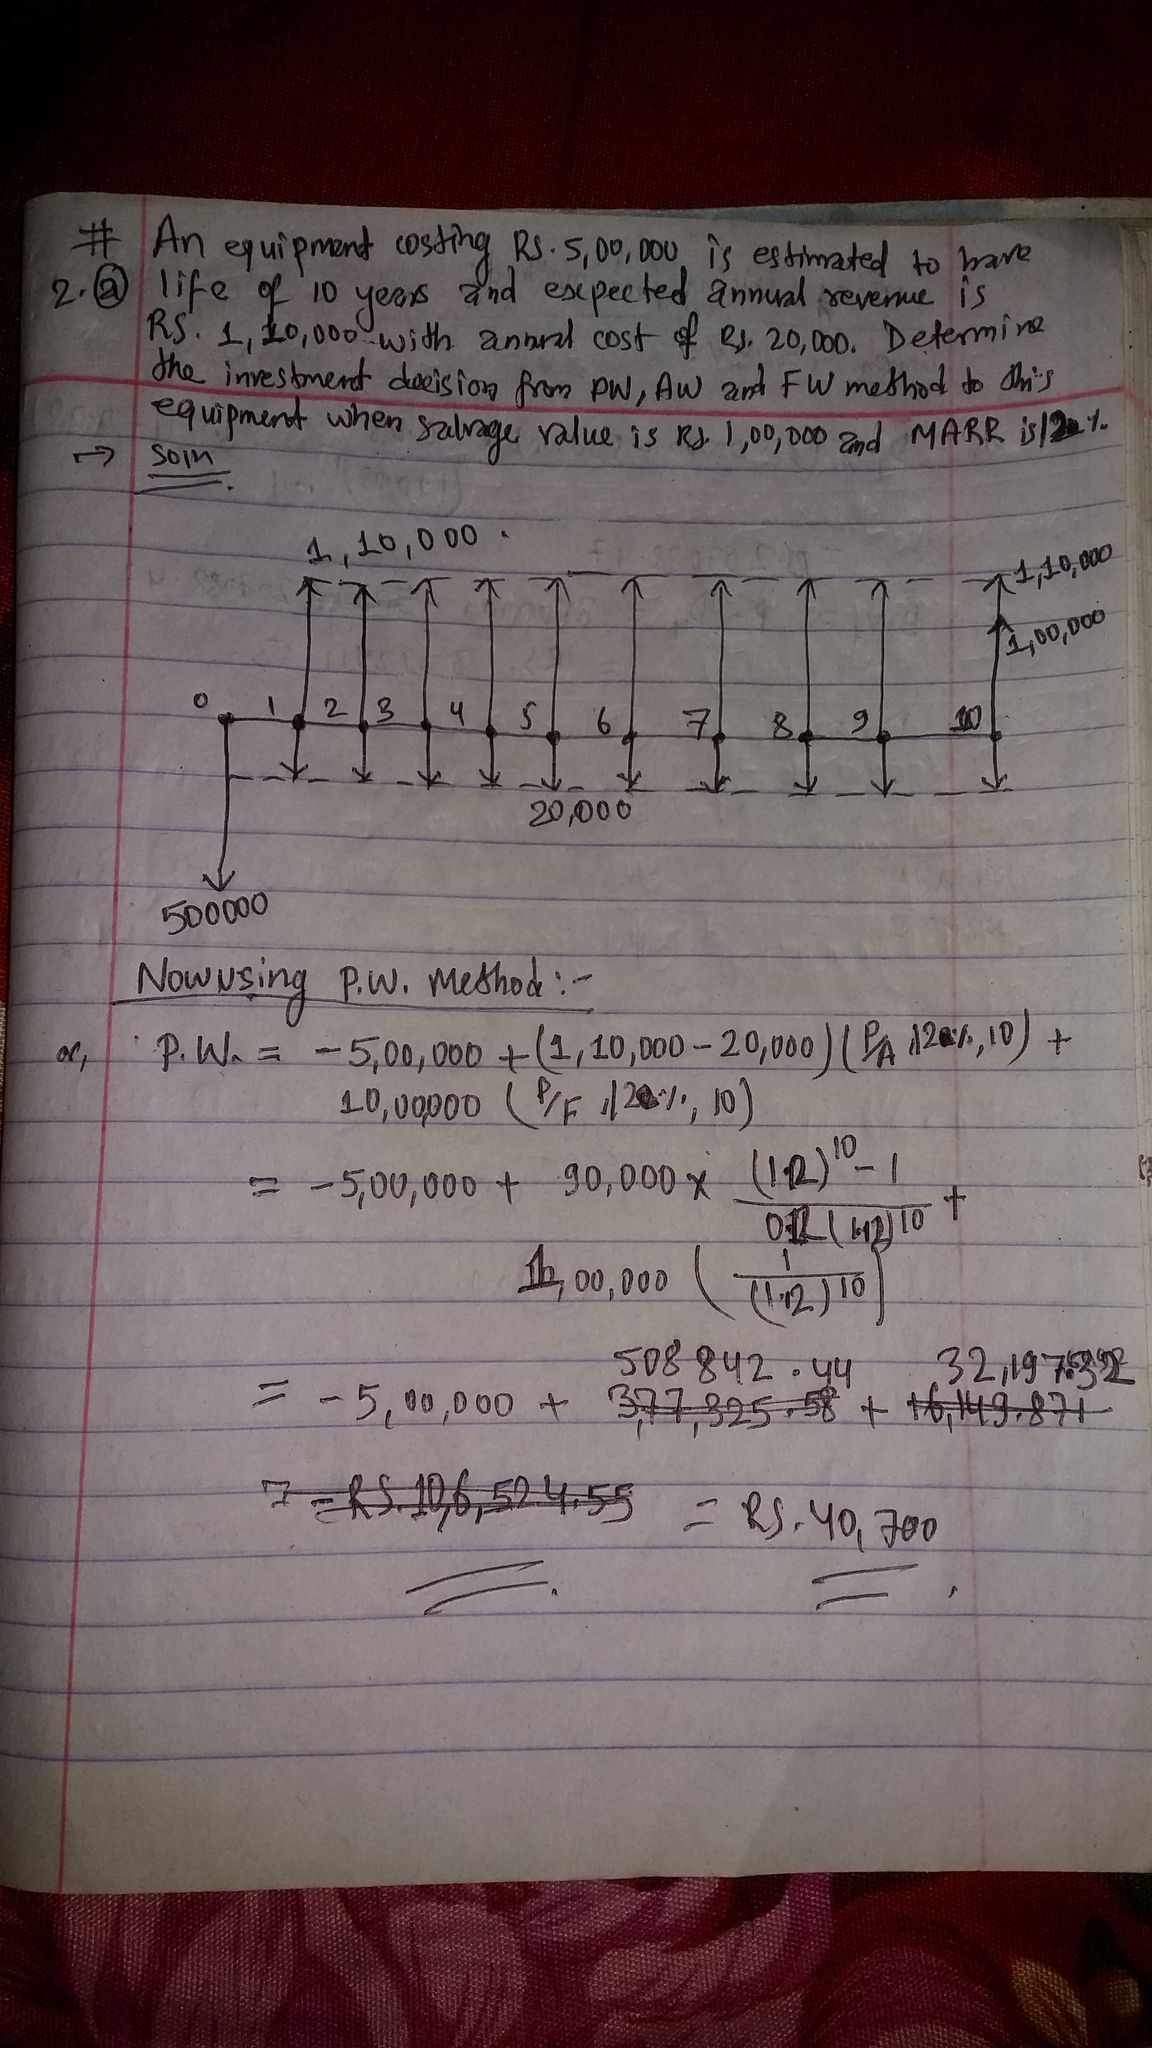 # An equipment costing RS. 5,00,000 is estimated to have
2. (a) life of 10 years and expected annual revenue is
RS. 1,10,000 with annual cost of RS. 20,000. Determine
the investment decision from PW, AW and FW method to this
equipment when salvage value is RS. 1,00,000 and MARR is 12%.
→ Soln
1,10,000.
1,10,000
1,00,000
0 1 2 3 4 5 6 7 8 9 10
20,000
500000
Now using P.W. Method:-
or, P.W. = -5,00,000 + (1,10,000 - 20,000) (P/A, 12%, 10) +
10,00,000 (P/F, 12%, 10)
= -5,00,000 + 90,000 × (1.12)^10 - 1 / 0.12 (1.12)^10 +
1,00,000 ( 1 / (1.12)^10 )
508842.44 32,197.32
= -5,00,000 + 3,77,325.58 + 16,149.871
= RS. 10,6,524.55 = RS. 40,700